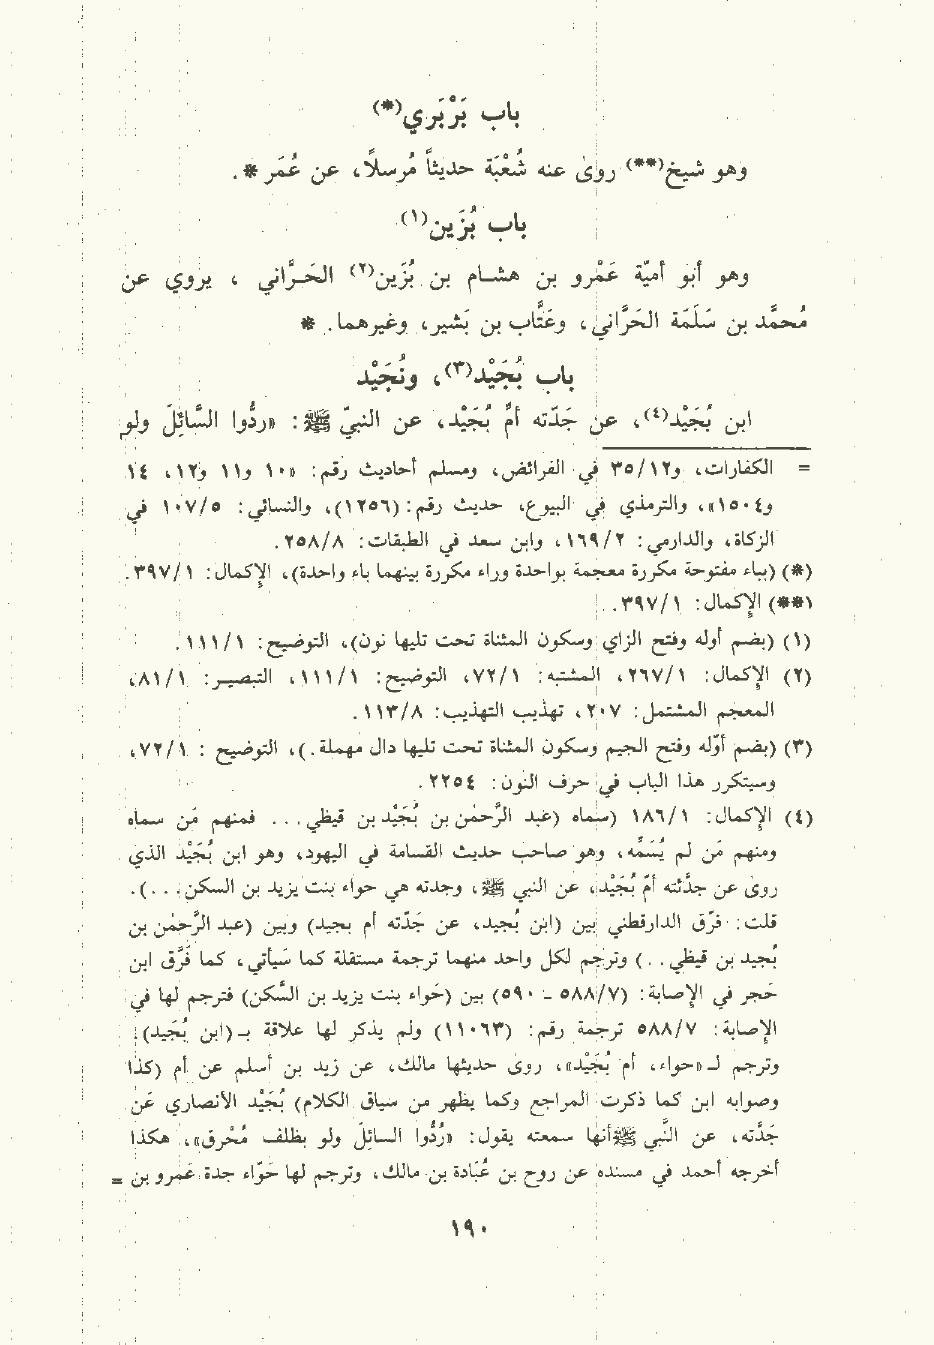 باب بَرْبَري(*)
وهو شيخ(**) روىٰ عنه شُعْبَة حديثاً مُرسلاً، عن عُمَر * .
باب بُزَين(١)
وهو أبو أميّة عَمْرو بن هشـام بن بُزَين(٢) الحَـرَّاني ، يروي عن
مُحمَّد بن سَلَمة الحَرَّاني، وعَتَّاب بن بَشير، وغيرهما. *
باب بُجَيْد(٣)، ونُجَيْد
ابن بُجَيْد(٤)، عن جَدّته أمِّ بُجَيْد، عن النبيّ ﷺ: «ردُّوا السَّائِلَ ولو
= الكفارات، و٣٥/١٢ في الفرائض، ومسلم أحاديث رقم: «١٠ و١١ و١٢، ١٤
و١٥٠٤»، والترمذي في البيوع، حديث رقم: (١٢٥٦)، والنسائي: ١٠٧/٥ في
الزكاة، والدارمي: ١٦٩/٢، وابن سعد في الطبقات: ٢٥٨/٨.
(*) (بباء مفتوحة مكررة معجمة بواحدة وراء مكررة بينهما باء واحدة)، الإكمال: ٣٩٧/١.
(**١ الإكمال: ٣٩٧/١.
(١) (بضم أوله وفتح الزاي وسكون المثناة تحت تليها نون)، التوضيح: ١١١/١.
(٢) الإكمال: ٢٦٧/١، المشتبه: ٧٢/١، التوضيح: ١١١/١، التبصيـر: ٨١/١،
المعجم المشتمل: ٢٠٧، تهذيب التهذيب: ١١٣/٨.
(٣) (بضم أوّله وفتح الجيم وسكون المثناة تحت تليها دال مهملة.)، التوضيح : ٧٢/١،
وسيتكرر هذا الباب في حرف النون: ٢٢٥٤.
(٤) الإكمال: ١٨٦/١ (سماه (عبد الرَّحمٰن بن بُجَيْد بن قيظي... فمنهم مَن سماه
ومنهم مَن لم يُسَمِّه، وهو صاحب حديث القسامة في اليهود، وهو ابن بُجَيْد الذي
روىٰ عن جدَّته أمّ بُجَيْد، عن النبي ﷺ، وجدته هي حواء بنت يزيد بن السكن...).
قلت: فرّق الدارقطني بين (ابن بُجيد، عن جَدّته أم بجيد) وبين (عبد الرَّحمٰن بن
بُجيد بن قيظي..) وترجم لكل واحد منهما ترجمة مستقلة كما سَيأتي، كما فَرَّق ابن
حَجر في الإصابة: (٥٨٨/٧ ـ ٥٩٠) بين (حَواء بنت يزيد بن السَّكن) فترجم لها في
الإصابة: ٥٨٨/٧ ترجمة رقم: (١١٠٦٣) ولم يذكر لها علاقة بـ (ابن بُجَيد)؛
وترجم لـ «حواء، أم بُجَيْد»، روىٰ حديثها مالك، عن زيد بن أسلم عن أم (كذا
وصوابه ابن كما ذكرت المراجع وكما يظهر من سياق الكلام) بُجَيْد الأنصاري عَن
جَدَّته، عن النَّبي ﷺ أنها سمعته يقول: «رُدُّوا السائلَ ولو بظلف مُحْرق»، هكذا
أخرجه أحمد في مسنده عن روح بن عُبَادة بن مالك، وترجم لها حَوّاء جدة عَمرو بن =
١٩٠